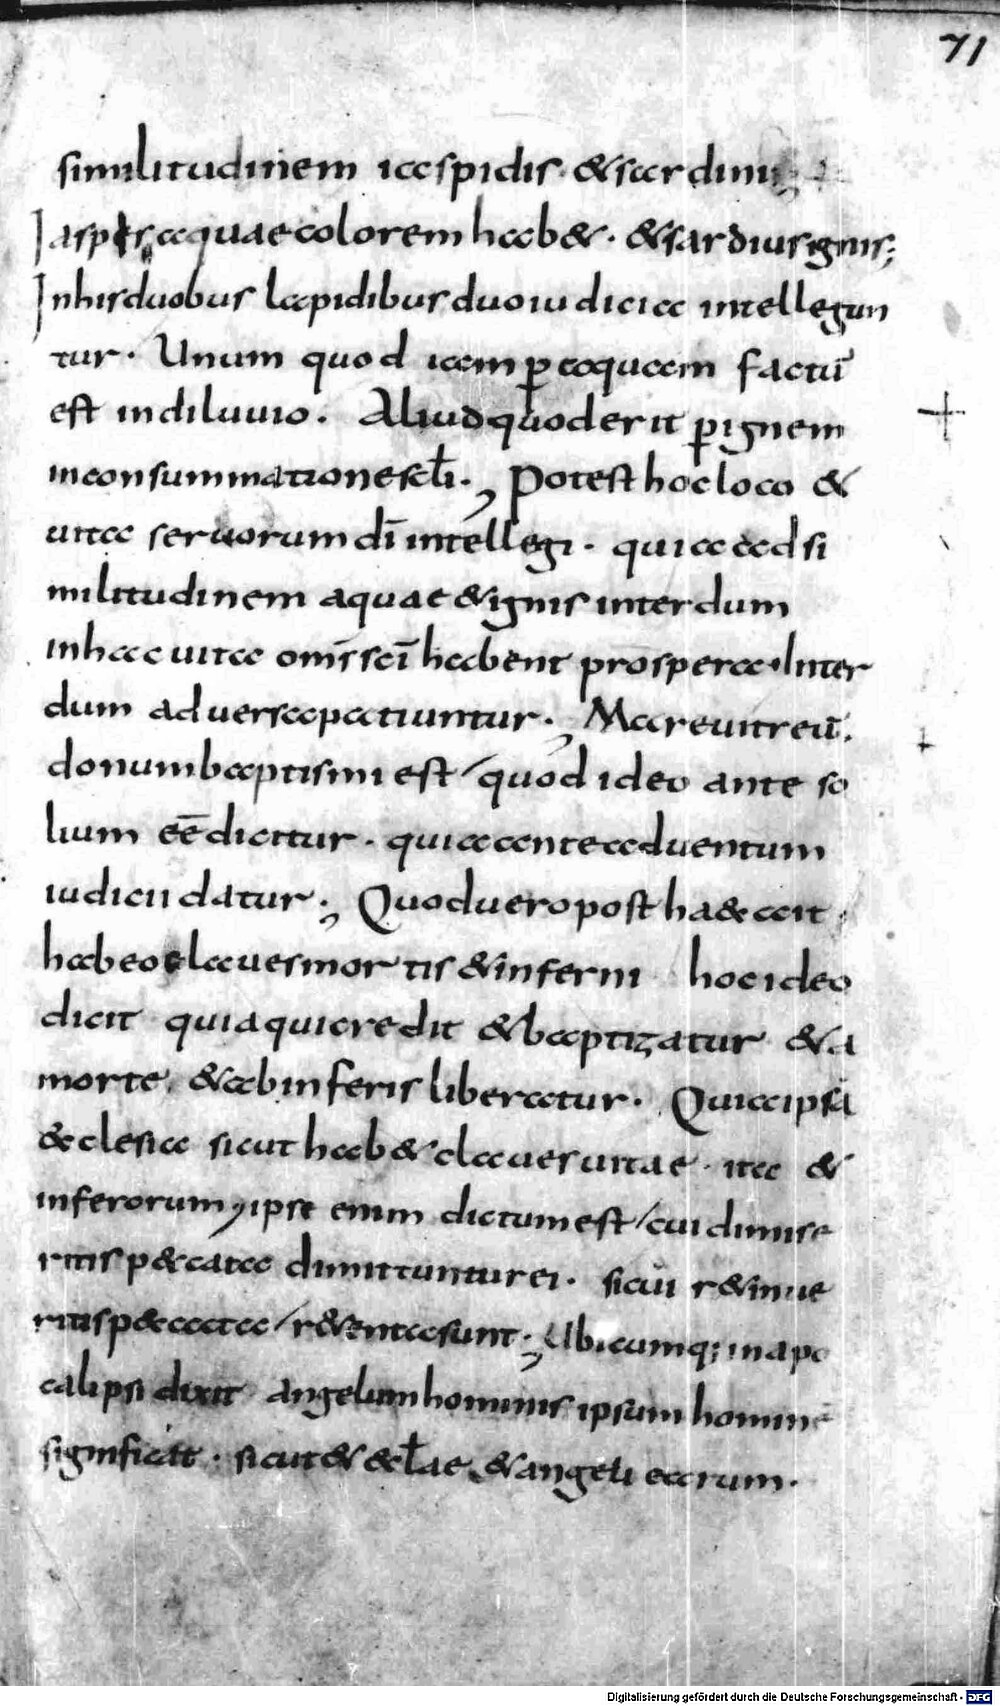 71
similitudinem iaspidis & sardini;
Iaspis aquae colorem hab&. & sardius ignis;
In his duobus lapidibus duo iudicia intellegun
tur. Unum quod iam p̱ aquam factū
est in diluuio. Aliud quod erit p̱ ignem
in consummatione scłi.; Potest hoc loco &
uita seruorum dī intellegi. quia ad si
militudinem aquae & ignis interdum
in hac uita om̅s sc̅i habent prospera. Inter
dum aduersa patiuntur.; Mare uitreū.
donum baptismi est / quod ideo ante so
lium ee̅ dicitur. quia ante aduentum
iudicii datur.; Quod uero post haec ait.
habeo claues mortis & inferni hoc ideo
dicit quia qui credit & baptizatur & a
morte, & ab inferis liberatur. Quia ipsa
&clesia sicut hab& claues uitae. ita &
inferorum, ipse enim dictum est / cui dimise
ritis p&cata dimittuntur ei. sicui r&inue
ritis p&cata / r&enta sunt.; Ubicumq; in apo
calipsi dixit angelum hominis ipsum homine
significat. sicut & &cłae & angeli earum.
Digitalisierung gefördert durch die Deutsche Forschungsgemeinschaft - DFG